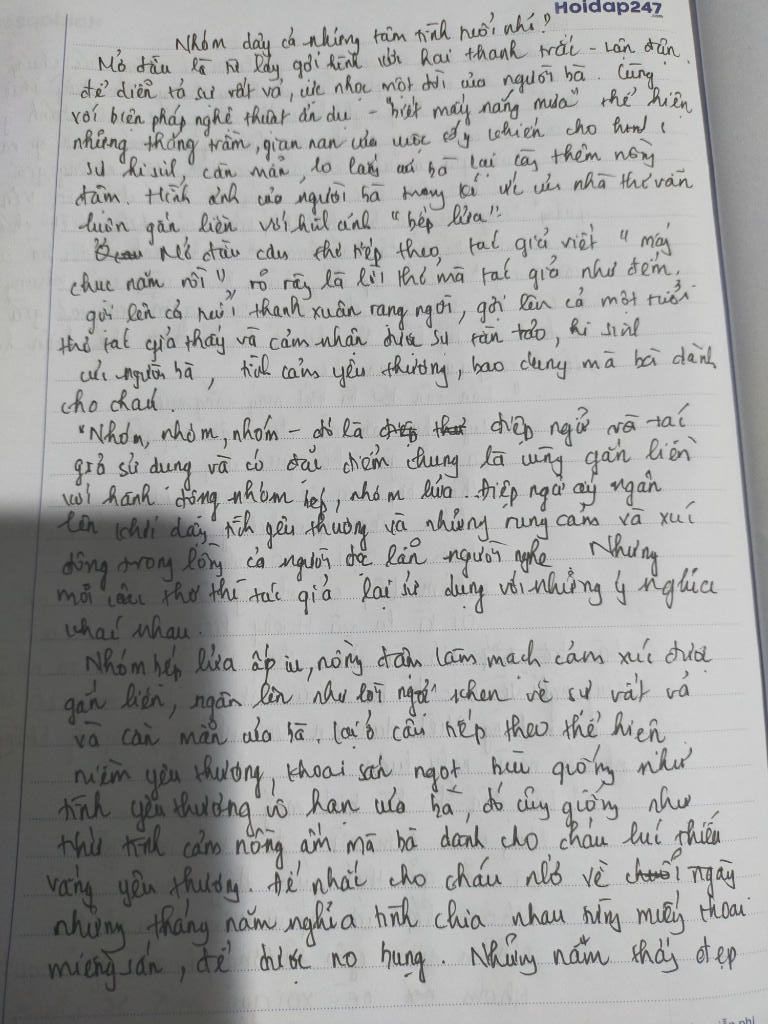 Hoidap247
.com
Nhóm dậy cả những tâm tình tuổi nhỏ?
Mở đầu là từ láy gợi hình với hai thanh trắc - Lận đận
để diễn tả sự vất vả, cực nhọc một đời của người bà. Cùng
với biện pháp nghệ thuật ẩn dụ - "biết mấy nắng mưa" thể hiện
những thăng trầm, gian nan của cuộc ấy khiến cho
sự hi sinh, cần mẫn, lo lắng bà lại càng thêm nồng
đậm. Hình ảnh của người bà trong kí ức của nhà thơ vẫn
luôn gắn liền với hình ảnh "bếp lửa".
Mở đầu câu thơ tiếp theo, tác giả viết "mấy
chục năm rồi", rõ ràng là lời thơ mà tác giả như đếm,
gửi lên cả tuổi thanh xuân rạng ngời, gởi lên cả một tuổi
thơ tác giả thấy và cảm nhận được sự tần tảo, hi sinh
của người bà, tình cảm yêu thương, bao dung mà bà dành
cho cháu.
"Nhóm, nhóm, nhóm - đó là điệp ngữ và tác
giả sử dụng và có đặc điểm chung là cùng gắn liền
với hành động nhóm bếp, nhóm lửa. Điệp ngữ ấy ngân
lên khơi dậy tình yêu thương và những rung cảm và xúc
động trong lòng cả người đọc lẫn người nghe Nhưng
mỗi câu thơ thì tác giả lại sử dụng với những ý nghĩa
khác nhau.
Nhóm bếp lửa ấp iu, nồng đậm làm mạch cảm xúc được
gắn liền, ngân lên như lời ngợi khen về sự vất vả
và cần mẫn của bà. Lại ở câu tiếp theo thể hiện
niềm yêu thương, khoai sắn ngọt bùi giống như
tình yêu thương vô hạn của bà, đó cũng giống như
thứ tình cảm nồng ấm mà bà dành cho cháu lúc thiếu
vắng yêu thương. Để nhắc cho cháu nhớ về ngày
những tháng năm nghĩa tình chia nhau từng miếng khoai
miếng sắn, để được no bụng. Những năm tháng đẹp